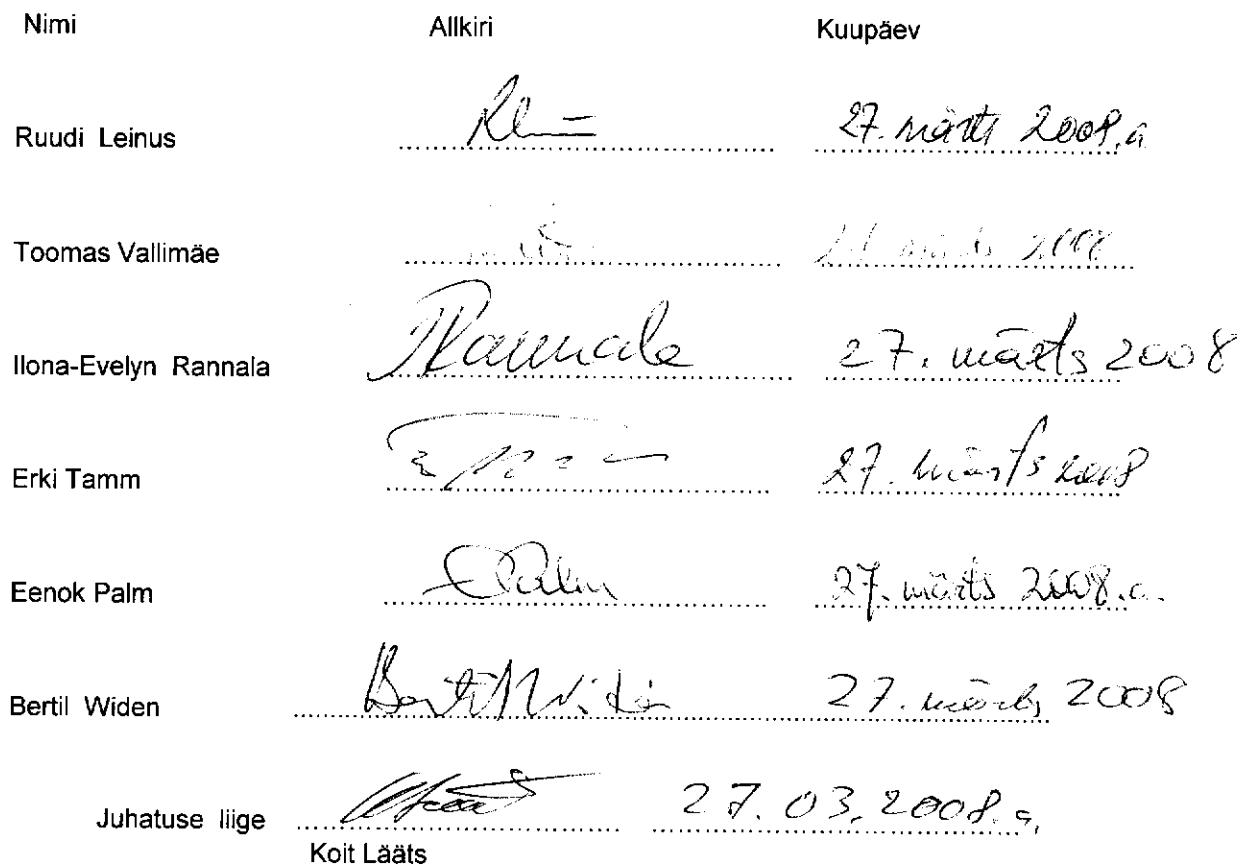 Nimi Allkiri Kuupäev
Ruudi Leinus 27. märts 2008.a
Toomas Vallimäe märts 2008
Ilona-Evelyn Rannala Rannala 27. märts 2008
Erki Tamm 27. märts 2008
Eenok Palm EPalm 27. märts 2008.a.
Bertil Widen Bertil Widén 27. märts 2008
Juhatuse liige 27.03.2008.a.
Koit Lääts